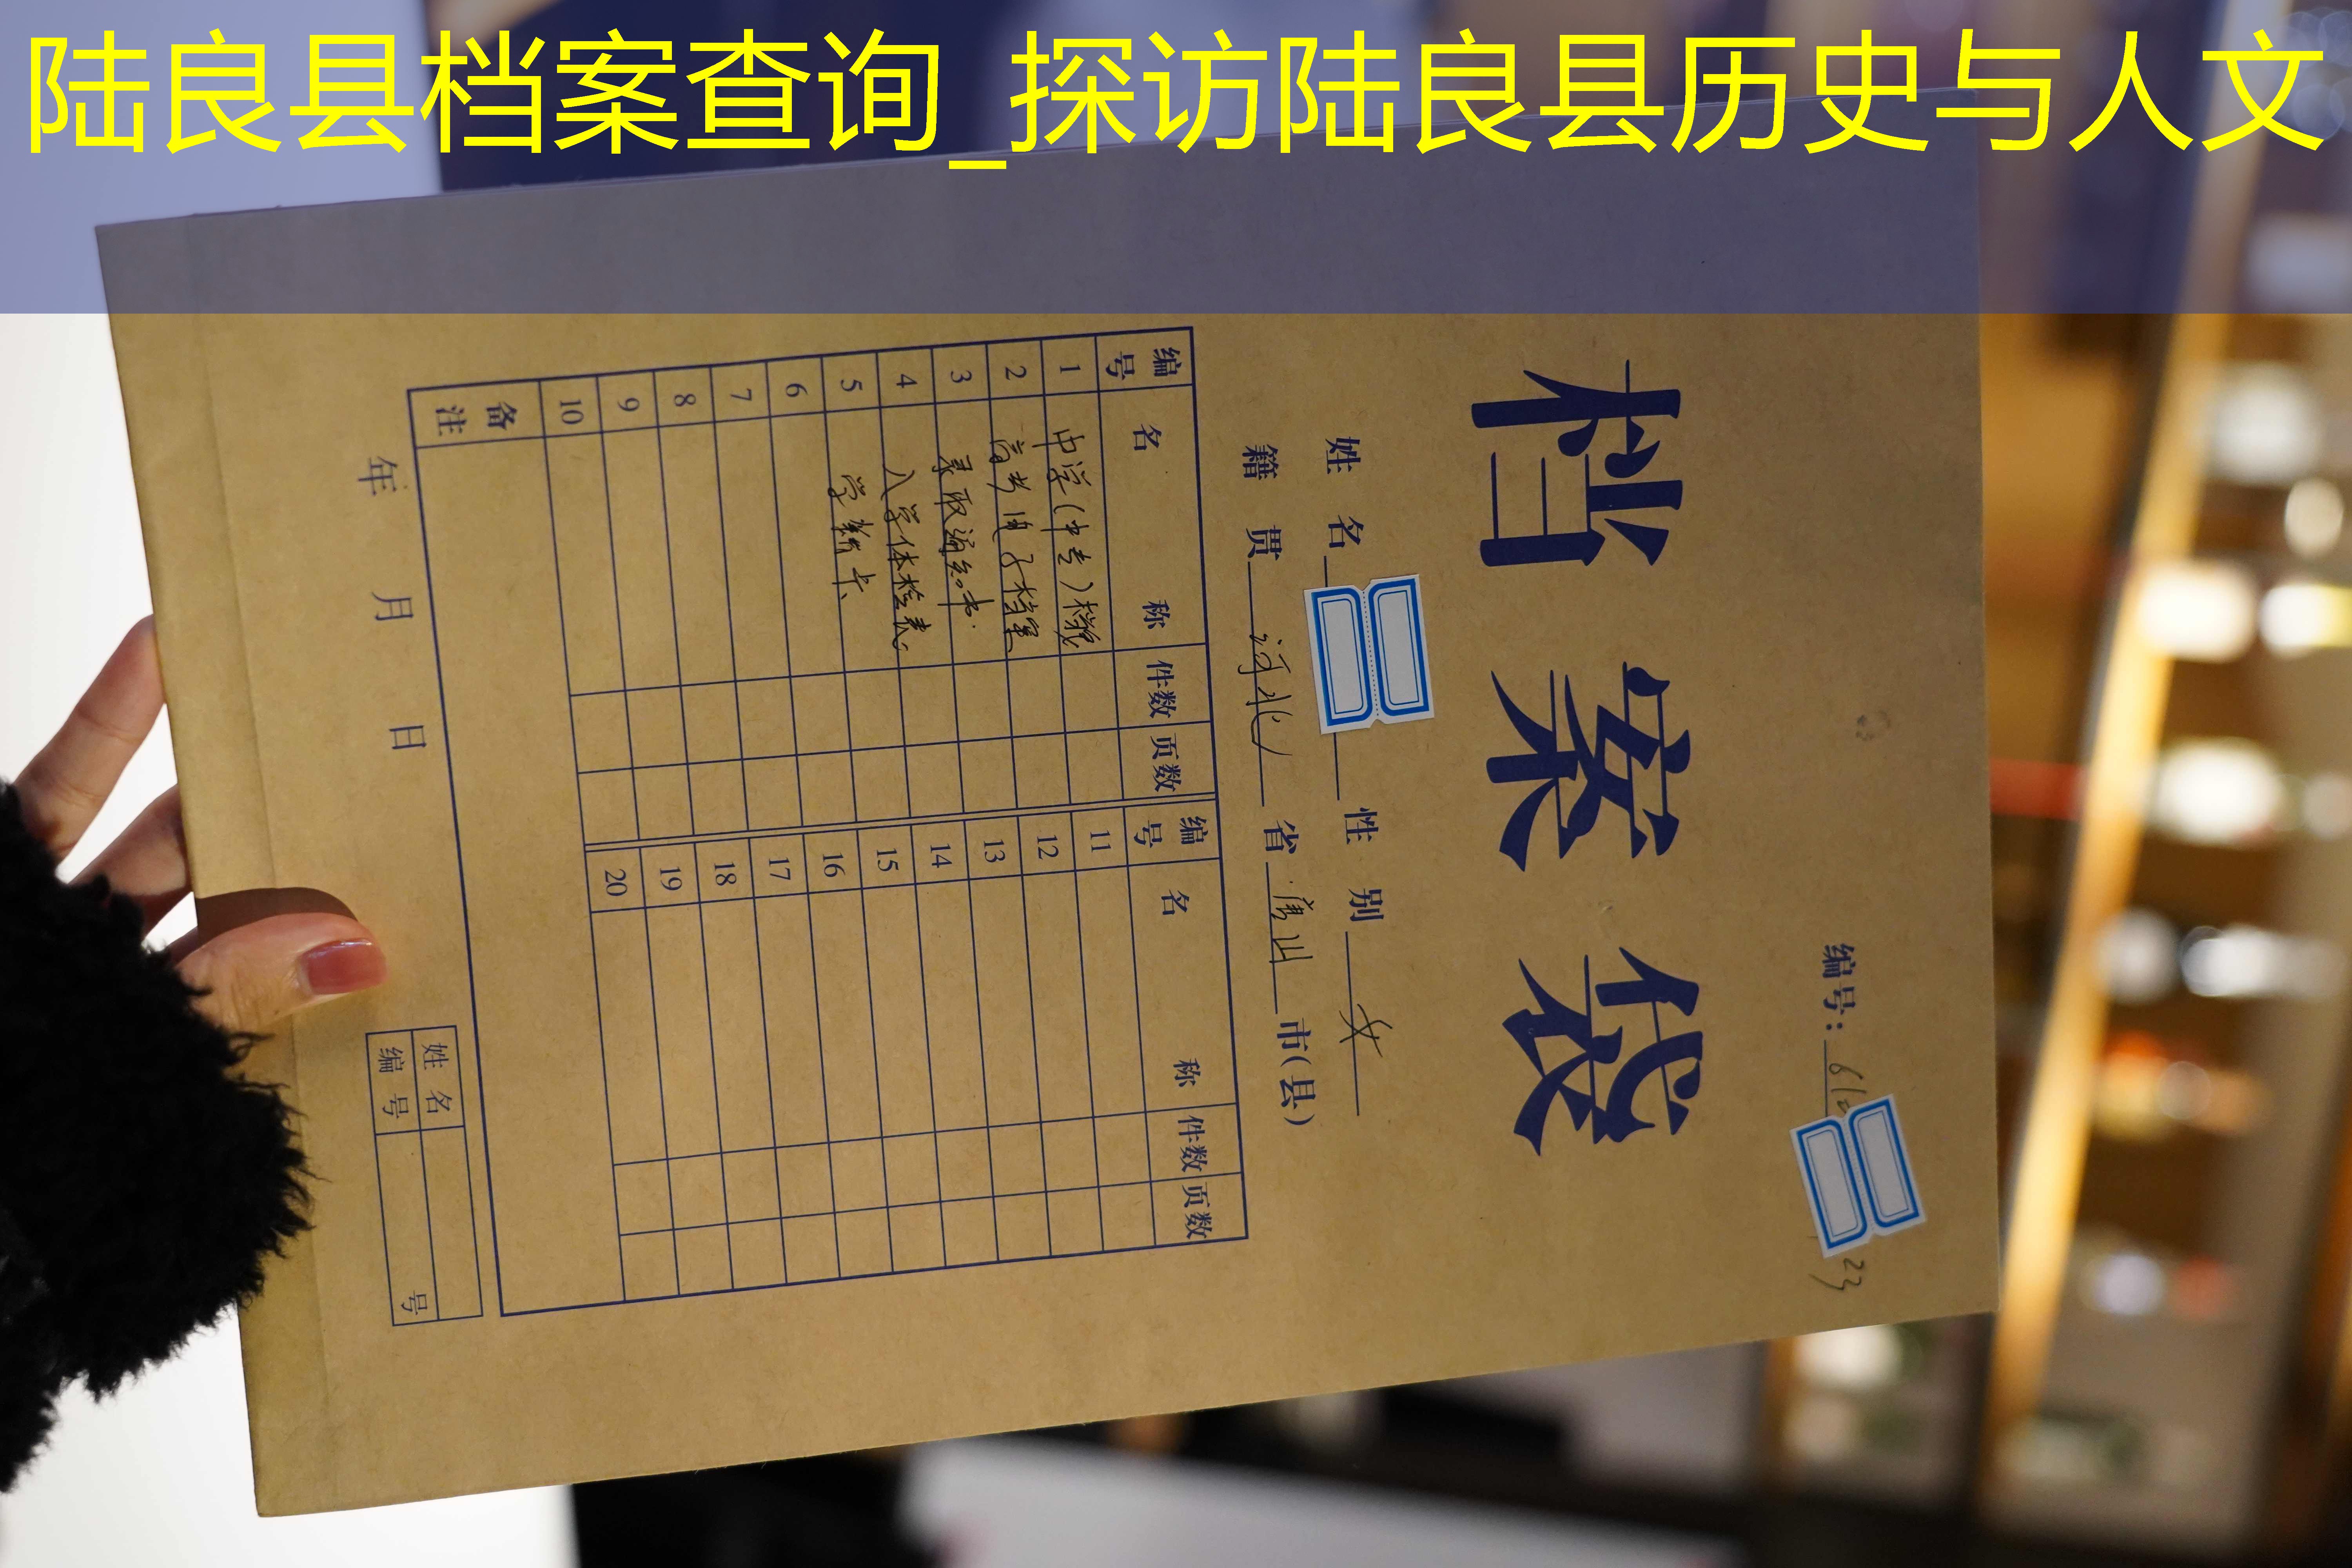 陆良县档案查询_探访陆良县历史与人文
编号：
23
档案袋
姓名 性别 女
籍贯 河北 省 唐山 市(县)
编号 名称 件数 页数 编号 名称 件数 页数
1 中学(中专)档案 11
2 高考电子档案 12
3 录取通知书 13
4 入学体检表 14
5 学籍卡 15
6 16
7 17
8 18
9 19
10 20
备注
年 月 日
姓名
编号 号